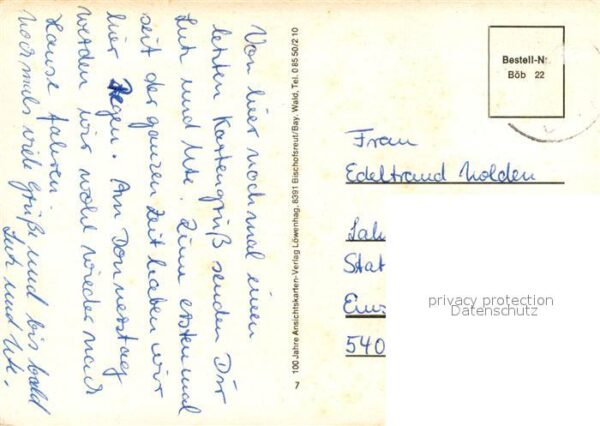 Von hier noch mal einen
letzten Kartengruß senden Dir
Lutz und Ute. Zum erstenmal
seit der ganzen Zeit haben wir
hier Regen. Am Donnerstag
werden wir wohl wieder nach
Hause fahren.
Nochmals viele Grüße und bis bald
Lutz und Ute.
100 Jahre Ansichtskarten-Verlag Löwenhag, 8391 Bischofsreut/Bay. Wald, Tel. 0 85 50/2 10
7
Bestell-Nr.
Böb 22
Frau
Edeltraud Nolden
Stat
540
privacy protection
Datenschutz